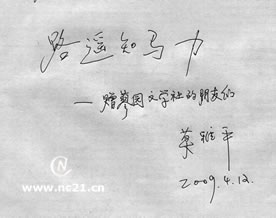 路遥知马力
——赠蓼园文学社的朋友们
莫雅平
2009.4.12.
www.nc21.cn